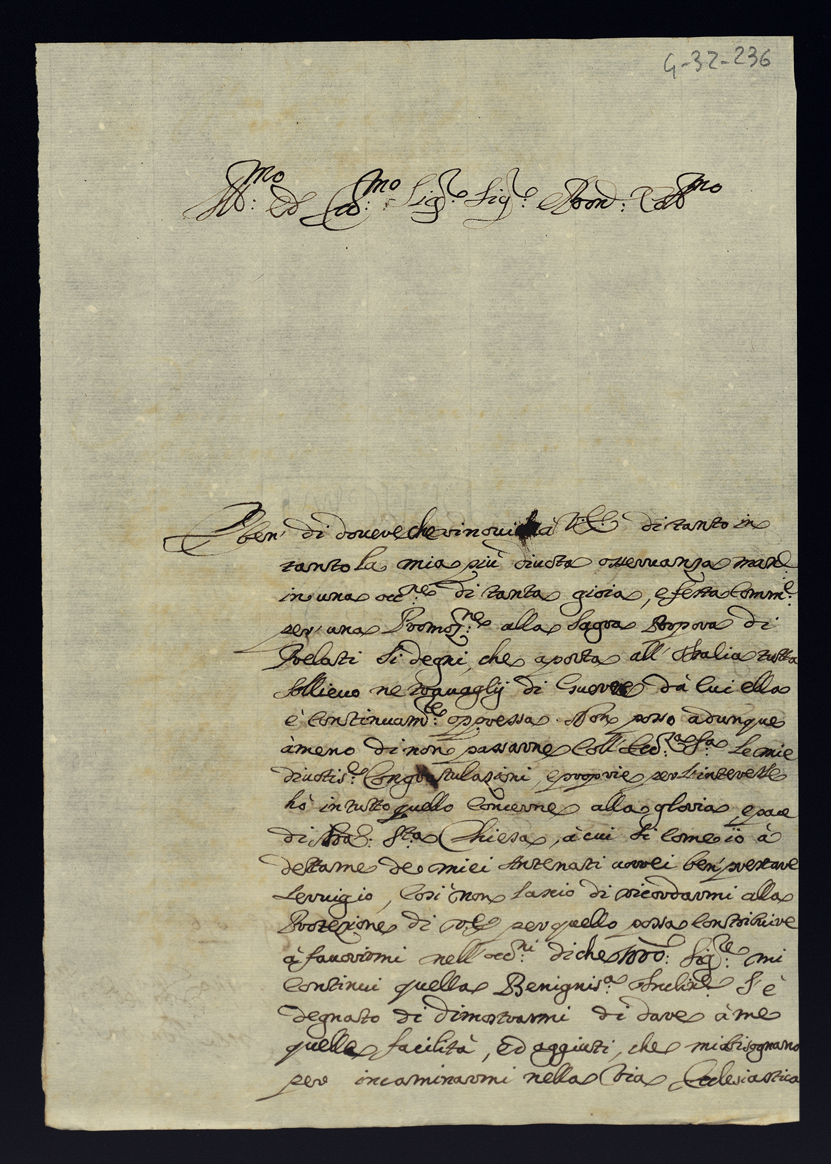 G-32-236
Ill:mo Ed Ecc:mo Sig:re Sig:re Pron: Col:mo
E ben' di dovere che rinovi à V:E: di tanto in
tanto la mia più divota osservanza mass:e
in una occ:ne di tanta gioia, e festa comm:e
per una Promoz:ne alla Sagra Porpora di
Prelati sì degni, che aporta all' Italia tutta
sollievo ne ragguaglij di Guerre da cui ella
è continuam:te oppressa. Non posso adunque
à meno di non passarne coll' Ecc:za S:a le mie
divotis:e Congratulazioni, e proprie per l'interesse
hò in tutto quello concerne alla gloria, e pace
di S:ta Chiesa, à cui sì come iò à
dettame de miei Antenati avrei ben' prestare
servigio, così non lascio di ricordarmi alla
Protezione di V:E: per quello possa contribuire
à favorirmi nell' occ:ni di che Sig:re mi
continui quella Benignis:a s' è
degnato di dimostrarmi di dare à me
quelle facilità, ed aggiuti, che mi bisognano
per incaminarmi nella Via Ecclesiastica